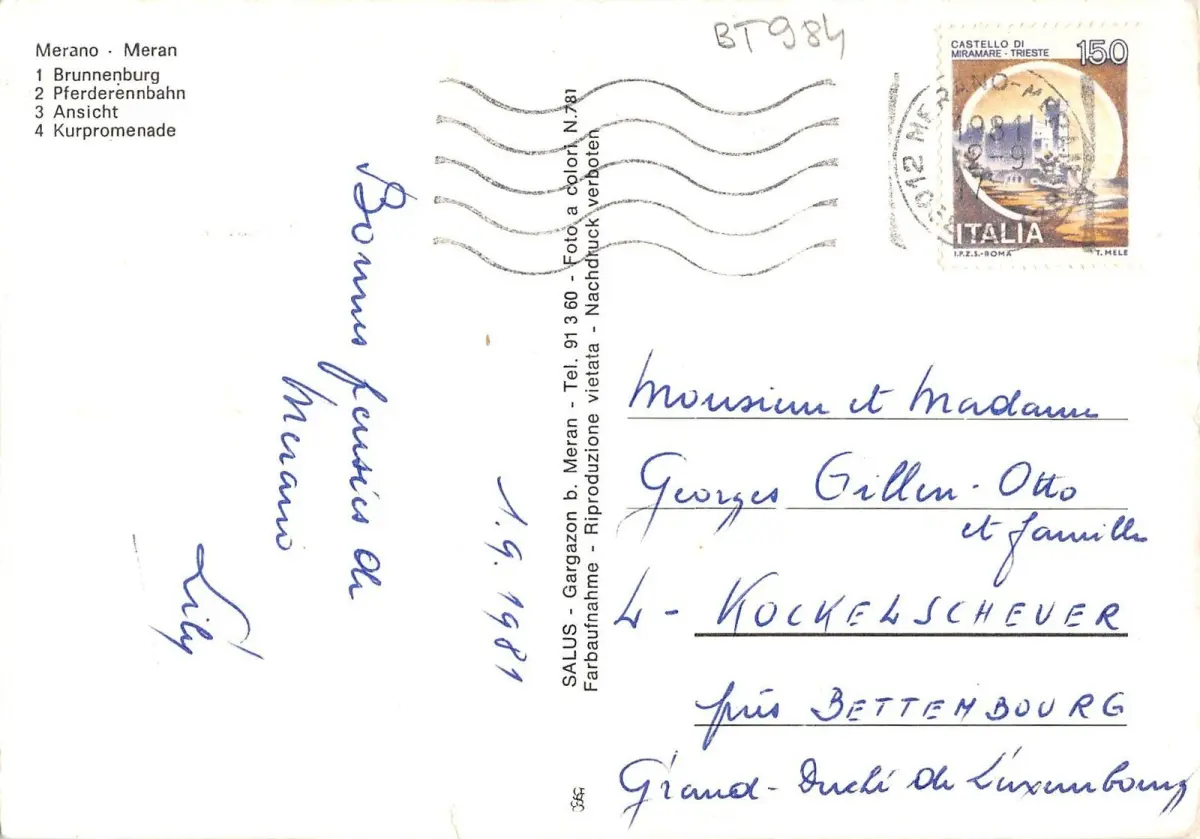 Merano · Meran
1 Brunnenburg
2 Pferderennbahn
3 Ansicht
4 Kurpromenade
BT984
CASTELLO DI
MIRAMARE - TRIESTE
150
ITALIA
I.P.Z.S.-ROMA
T. MELE
39012 MERANO-MERAN
1981
2-9
17
Bonnes pensées de
Merano
Lily
1.9.1981
SALUS - Gargazon b. Meran - Tel. 91 3 60 - Foto a colori N.781
Farbaufnahme - Riproduzione vietata - Nachdruck verboten
Monsieur et Madame
Georges Gillen-Otto
et famille
L - KOCKELSCHEUER
près BETTEMBOURG
Grand-Duché de Luxembourg